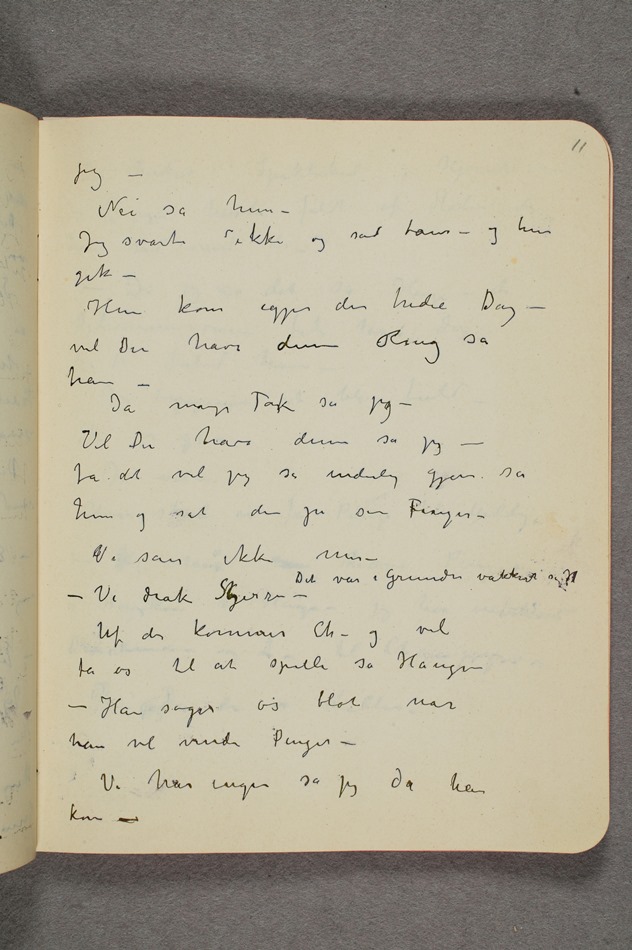 11
jeg –
Nei sa hun –
Jeg svarte ikke og sad taus – og hun
gik –
Hun kom igjen den tredie Dag –
vil De have denne Ring sa
han –
Ja mange Tak sa jeg –
Vil De have denne sa jeg –
Ja det vil jeg sa inderlig gjerne sa
hun og sat den på sin Finger –
Vi saes ikke mer –
Det var i Grunden vakkert sa H
– Vi drak Sherry –
Uf der kommer Ch – og vil
ta os til at spille sa Haugen
– Han søger os blot når
han vil vinde Penger –
Vi har ingen sa jeg da han
kom –